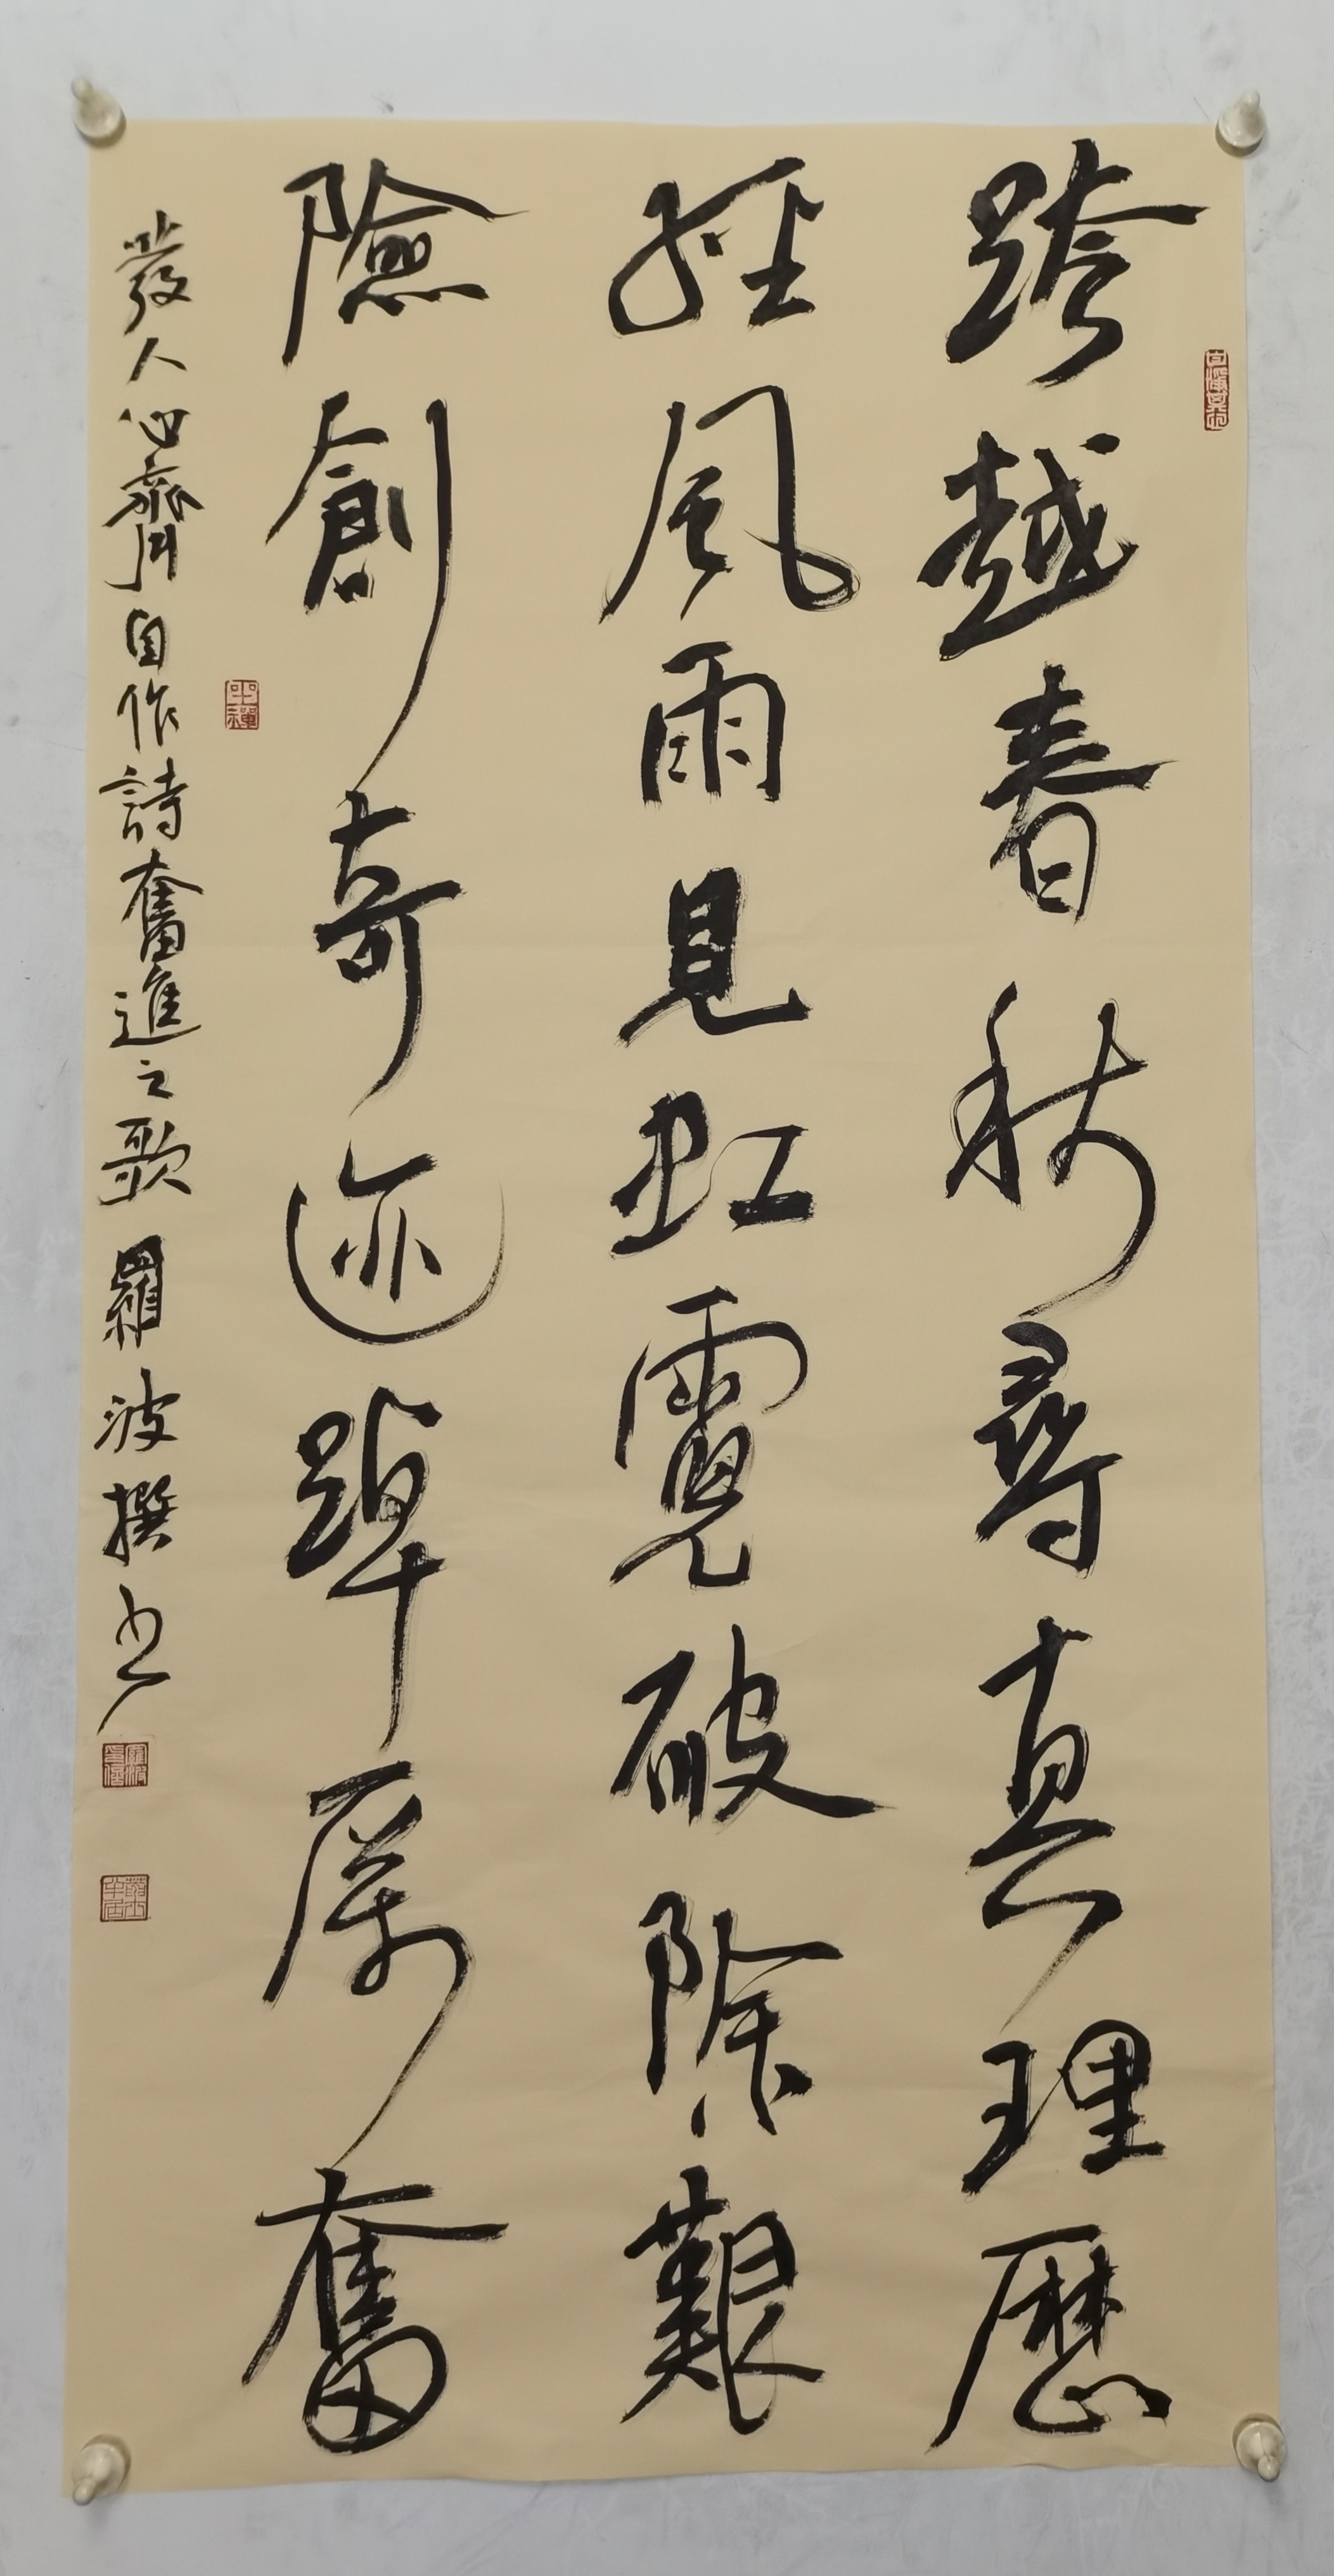 跨越春秋尋真理歷
經風雨見虹霓破除艱
險創奇迹踔厲奮
發人心齊自作詩奮進之歌 羅波撰書